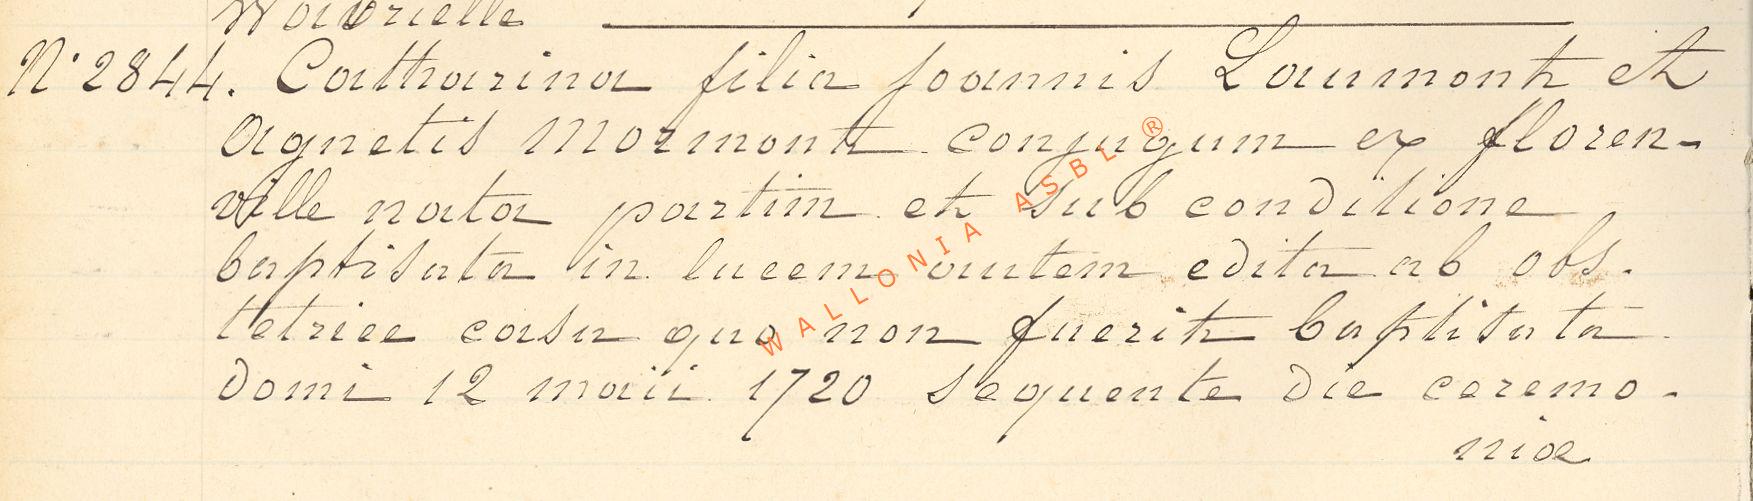 Wavrielle
N° 2844. Catharina filia Joannis Laumont et
Agnetis Mormont conjugum ex floren-
ville nata partim et sub conditione
baptisata in lucem autem edita ab obs.
tetrice casu quo non fuerit baptisata
domi 12 maii 1720 sequente die ceremo.
niae
WALLONIA ASBL®